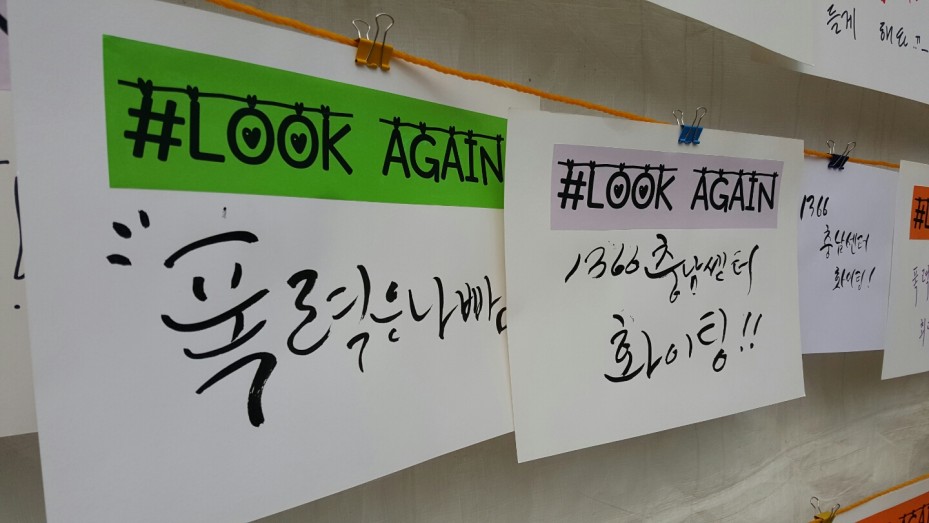 #LOOK AGAIN
폭력은나빠
#LOOK AGAIN
1366충남쎈터
화이팅!!
1366
충남센터
화이팅!
듣게 해요